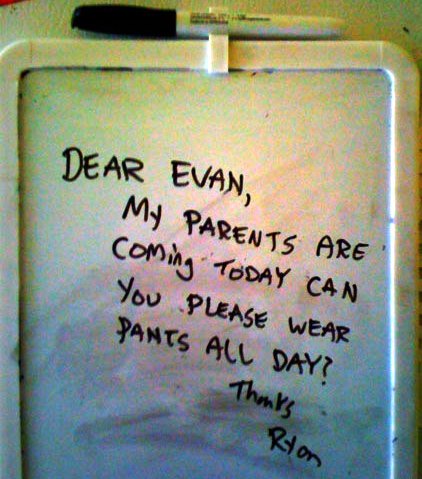 DEAR EVAN,
My PARENTS ARE
COMing TODAY CAN
YOU PLEASE WEAR
PANTS ALL DAY?
Thanks
Ryan